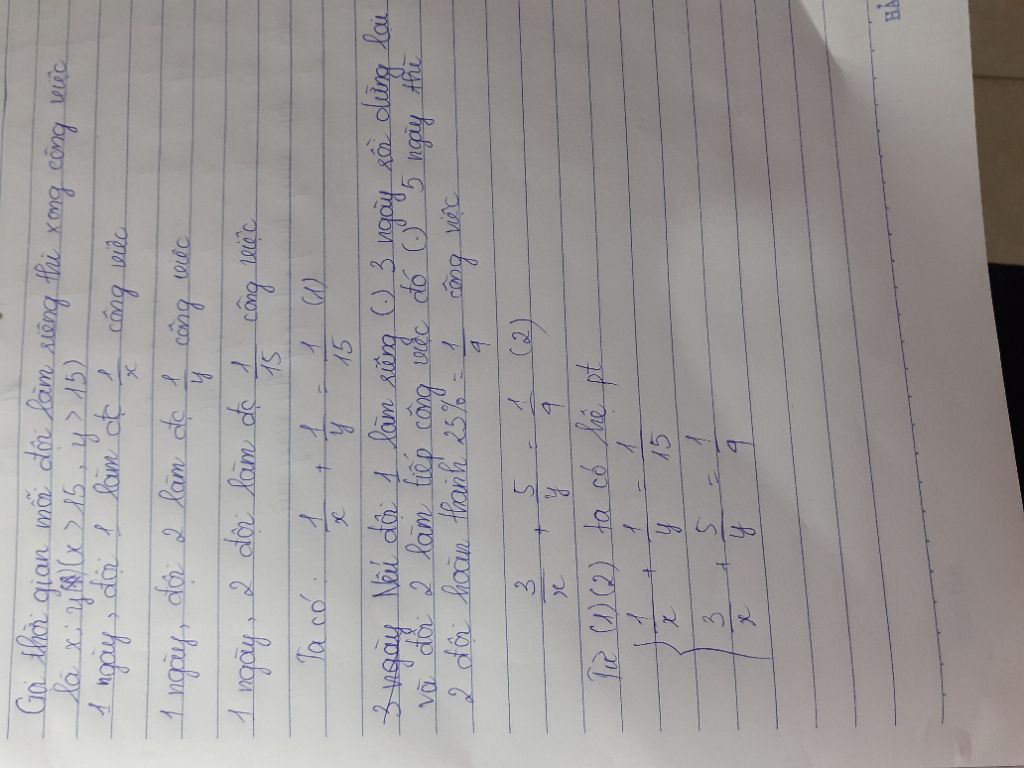 Gọi thời gian mỗi đội làm riêng thì xong công việc
là x; y (x > 15, y > 15)
1 ngày, đội 1 làm đc 1/x công việc
1 ngày, đội 2 làm đc 1/y công việc
1 ngày, 2 đội làm đc 1/15 công việc
Ta có: 1/x + 1/y = 1/15 (1)
3 ngày Nếu đội 1 làm riêng (.) 3 ngày rồi dừng lại
và đội 2 làm tiếp công việc đó (.) 5 ngày thì
2 đội hoàn thành 25% = 1/4 công việc
3/x + 5/y = 1/4 (2)
Từ (1) (2) ta có hệ pt
{ 1/x + 1/y = 1/15
3/x + 5/y = 1/4